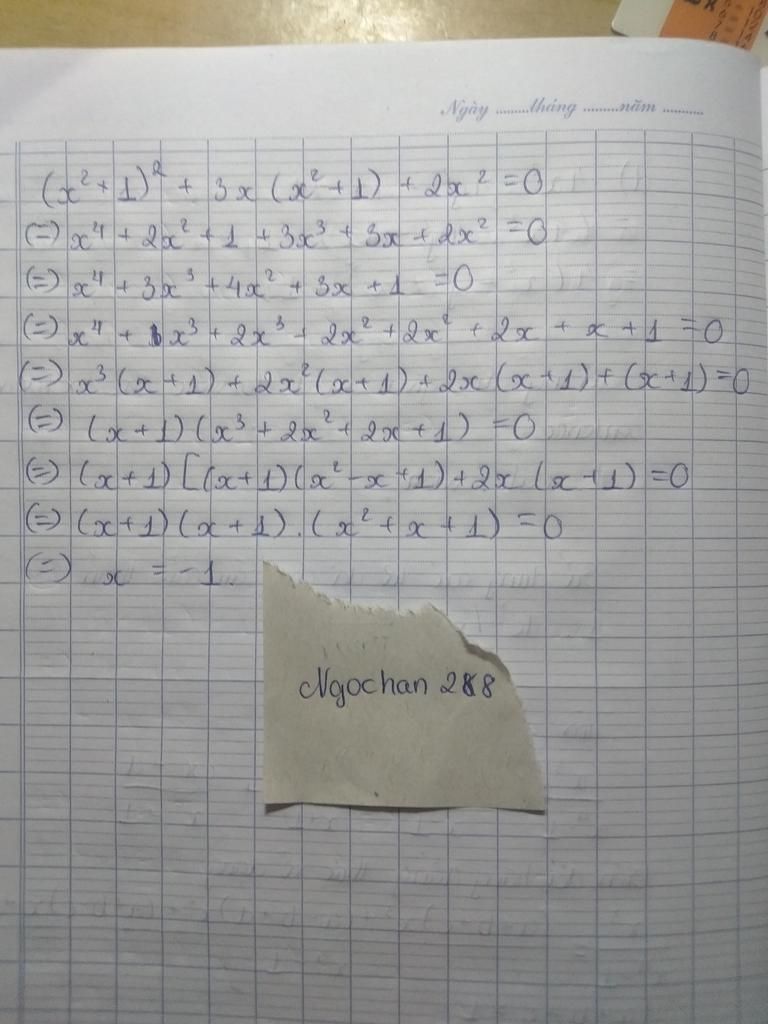 Ngày ........tháng ........năm .........
(x² + 1)² + 3x (x² + 1) + 2x² = 0
(=) x⁴ + 2x² + 1 + 3x³ + 3x + 2x² = 0
(=) x⁴ + 3x³ + 4x² + 3x + 1 = 0
(=) x⁴ + x³ + 2x³ + 2x² + 2x² + 2x + x + 1 = 0
(=) x³ (x + 1) + 2x² (x + 1) + 2x (x + 1) + (x + 1) = 0
(=) (x + 1) (x³ + 2x² + 2x + 1) = 0
(=) (x + 1) [(x + 1) (x² - x + 1) + 2x (x + 1) = 0
(=) (x + 1) (x + 1) . (x² + x + 1) = 0
(=) x = -1.
Ngochan 288